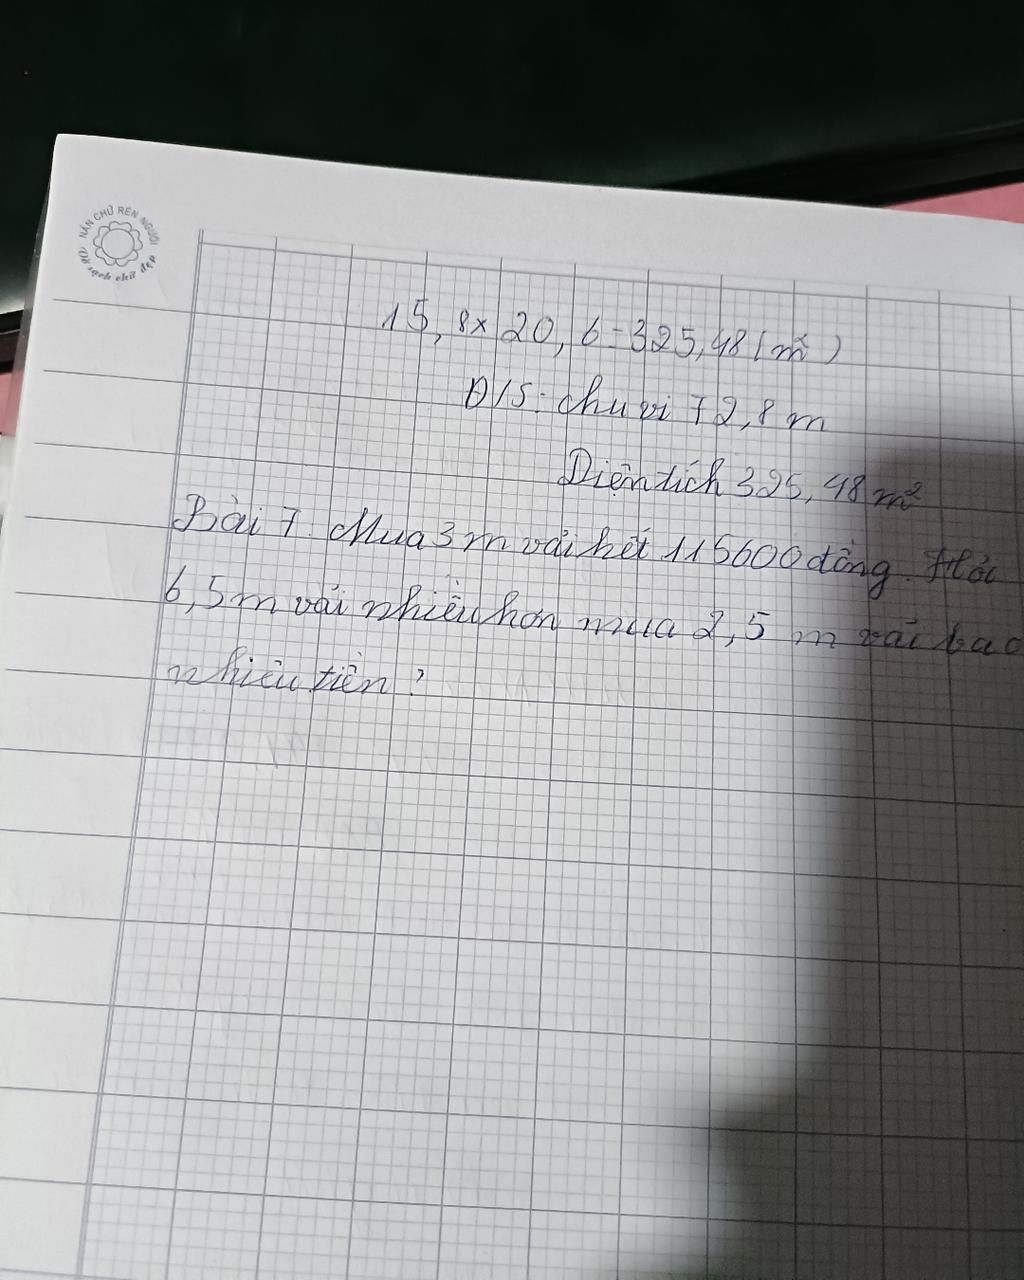 NẮN CHỮ RÈN NGƯỜI
Giữ sạch chữ đẹp
15,8 x 20,6 = 325,48 (m²)
Đ/S: chu vi 72,8 m
Diện tích 325,48 m²
Bài 7. Mua 3 m vải hết 115600 đồng. Hỏi
6,5 m vải nhiều hơn mua 2,5 m vải bao
nhiêu tiền ?